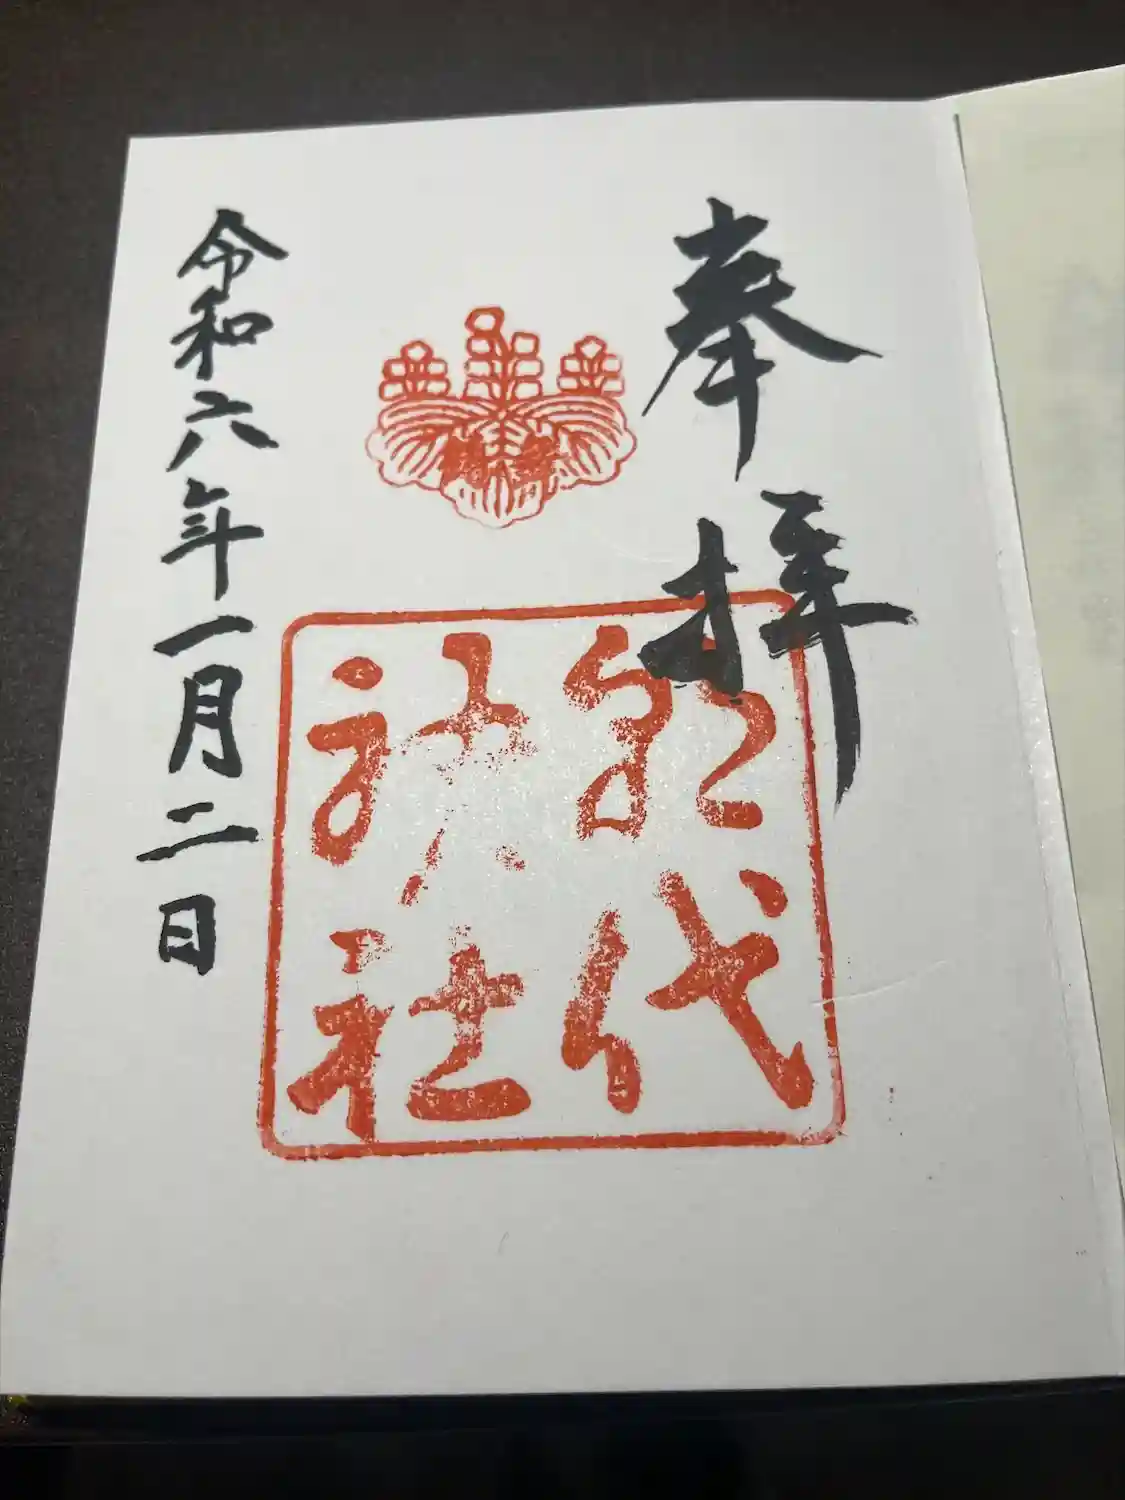 奉拝
代
社
令和六年一月二日